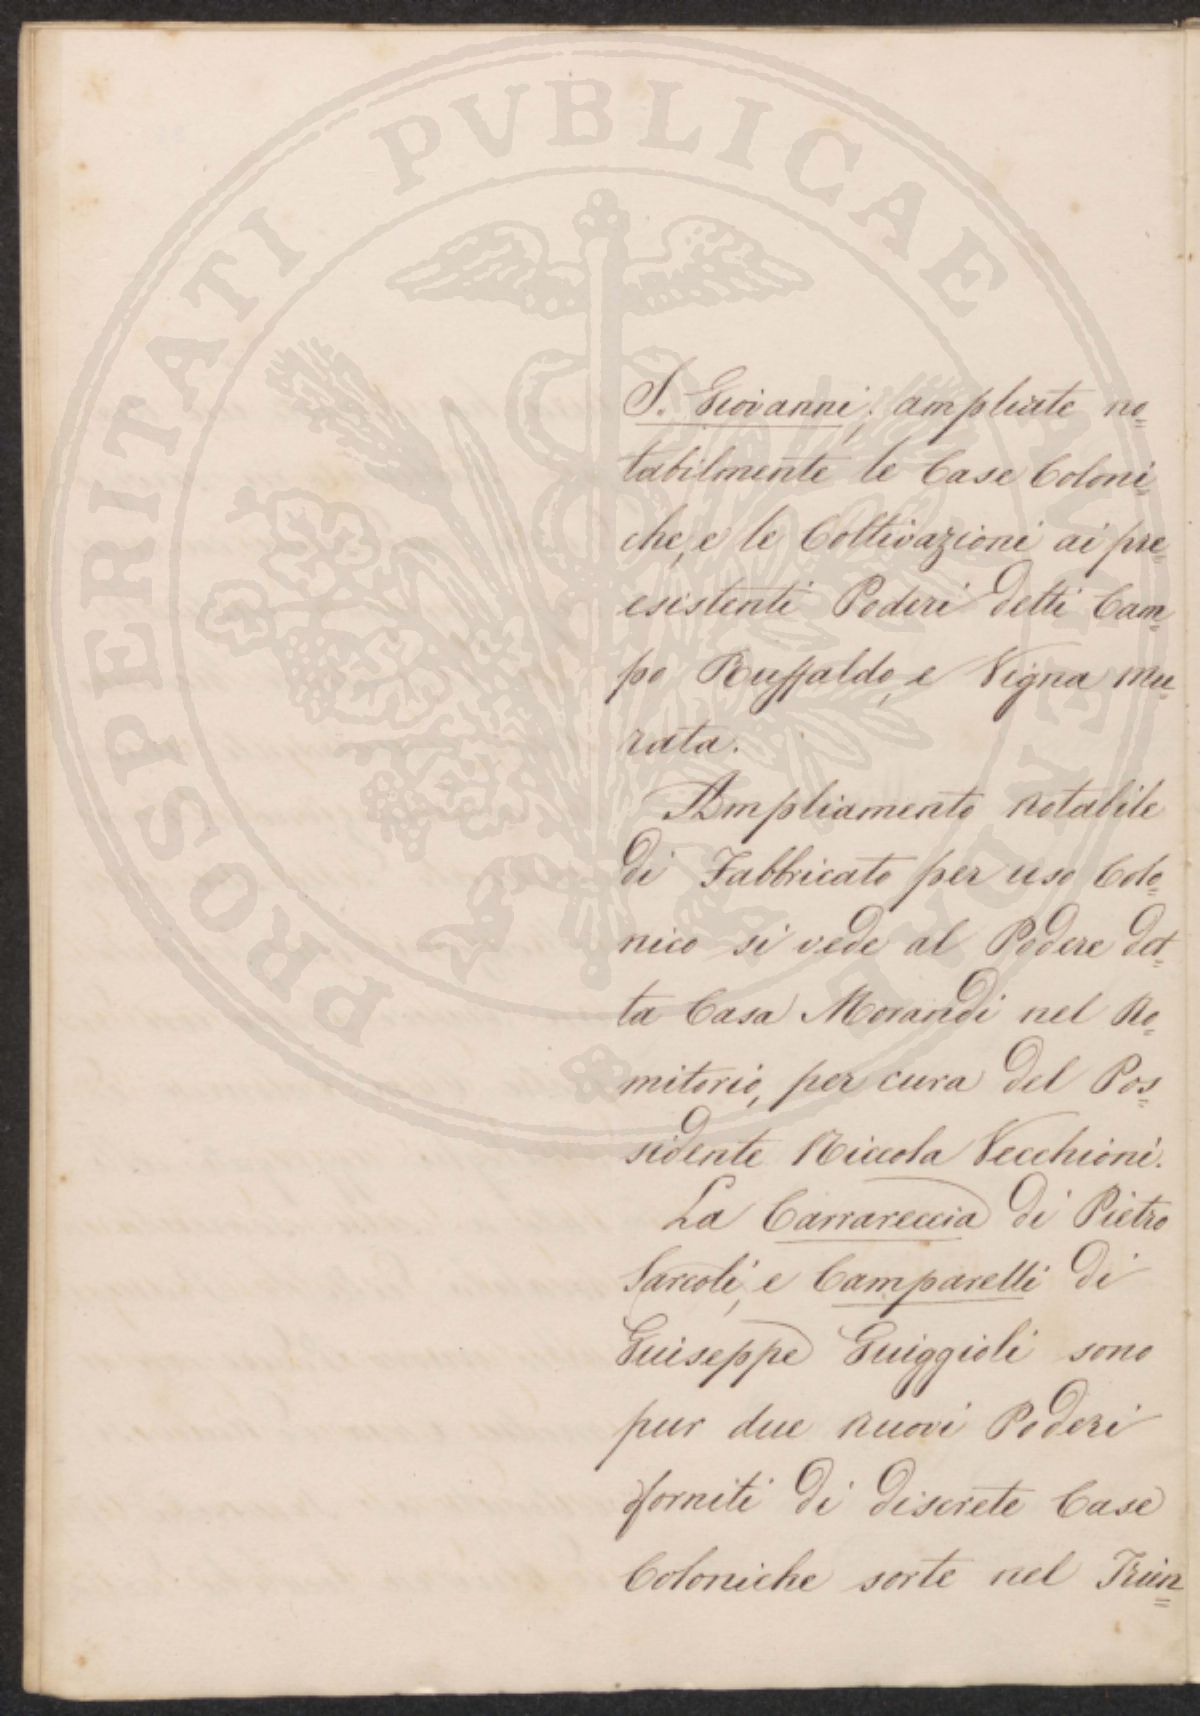 PROSPERITATI PVBLICAE AVGENDAE
S. Giovanni; ampliate no=
tabilmente le Case Coloni=
che, e le Coltivazioni ai pre=
esistenti Poderi detti Cam=
po Ruffaldo, e Vigna mu=
rata.
Ampliamento notabile
di Fabbricato per uso Colo=
nico si vede al Podere det=
to Casa Morandi nel Ro=
mitorio, per cura del Pos=
sidente Niccola Vecchioni.
La Carrareccia di Pietro
Sarcoli, e Camparelli di
Guiseppe Guiggioli sono
pur due nuovi Poderi
forniti di discrete Case
Coloniche sorte nel